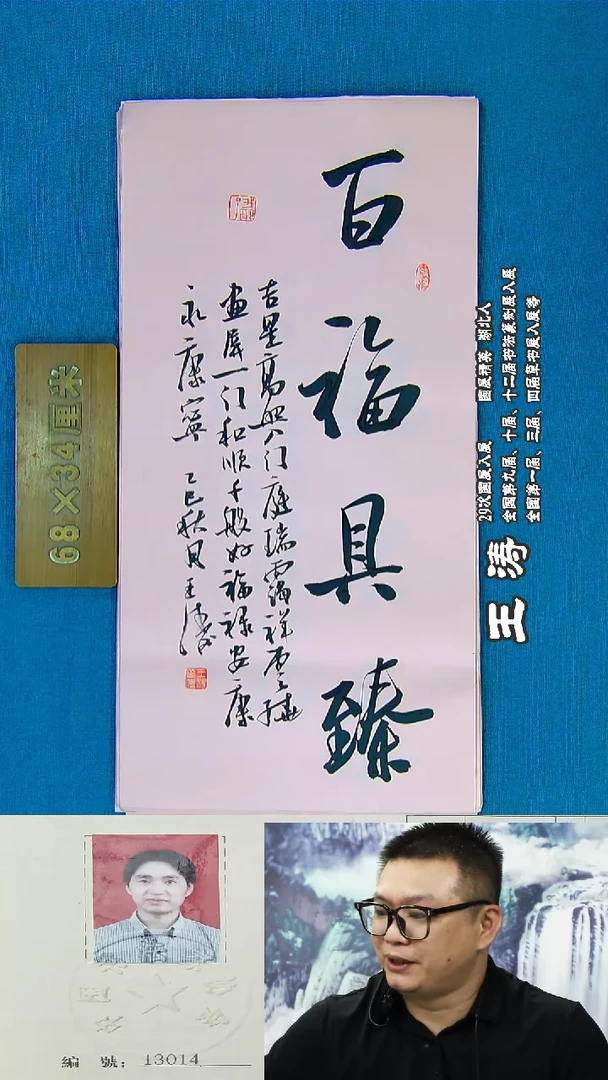 百福具臻
吉星高照入门庭瑞靄祥雲繞
畫屏一门和順千般好福祿安康
永康寧 乙巳秋月王涛
68×34厘米
29次國展入展 國展精英 湖北人
全國第九届、十届、十二届书法篆刻展入展
全國第一届、三届、四届草书展入展等
王涛
編 號: 13014